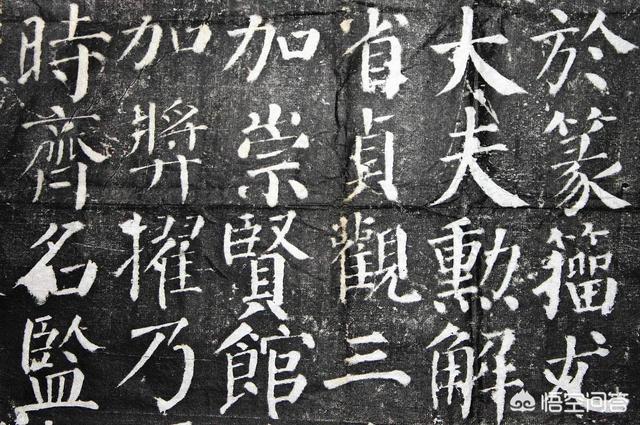 於篆籀尤
大夫勳解
省貞觀三
加崇賢館
加獎擢乃
時齊名監
悟空问答